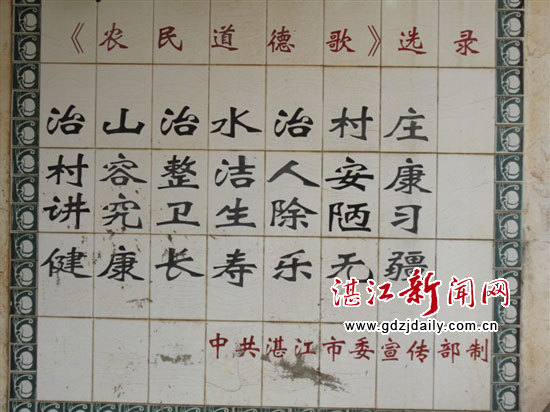 《农民道德歌》选录
治山治水治村庄
村容整洁人安康
讲究卫生除陋习
健康长寿乐无疆
湛江新闻网
www.gdzjdaily.com.cn
中共湛江市委宣传部制